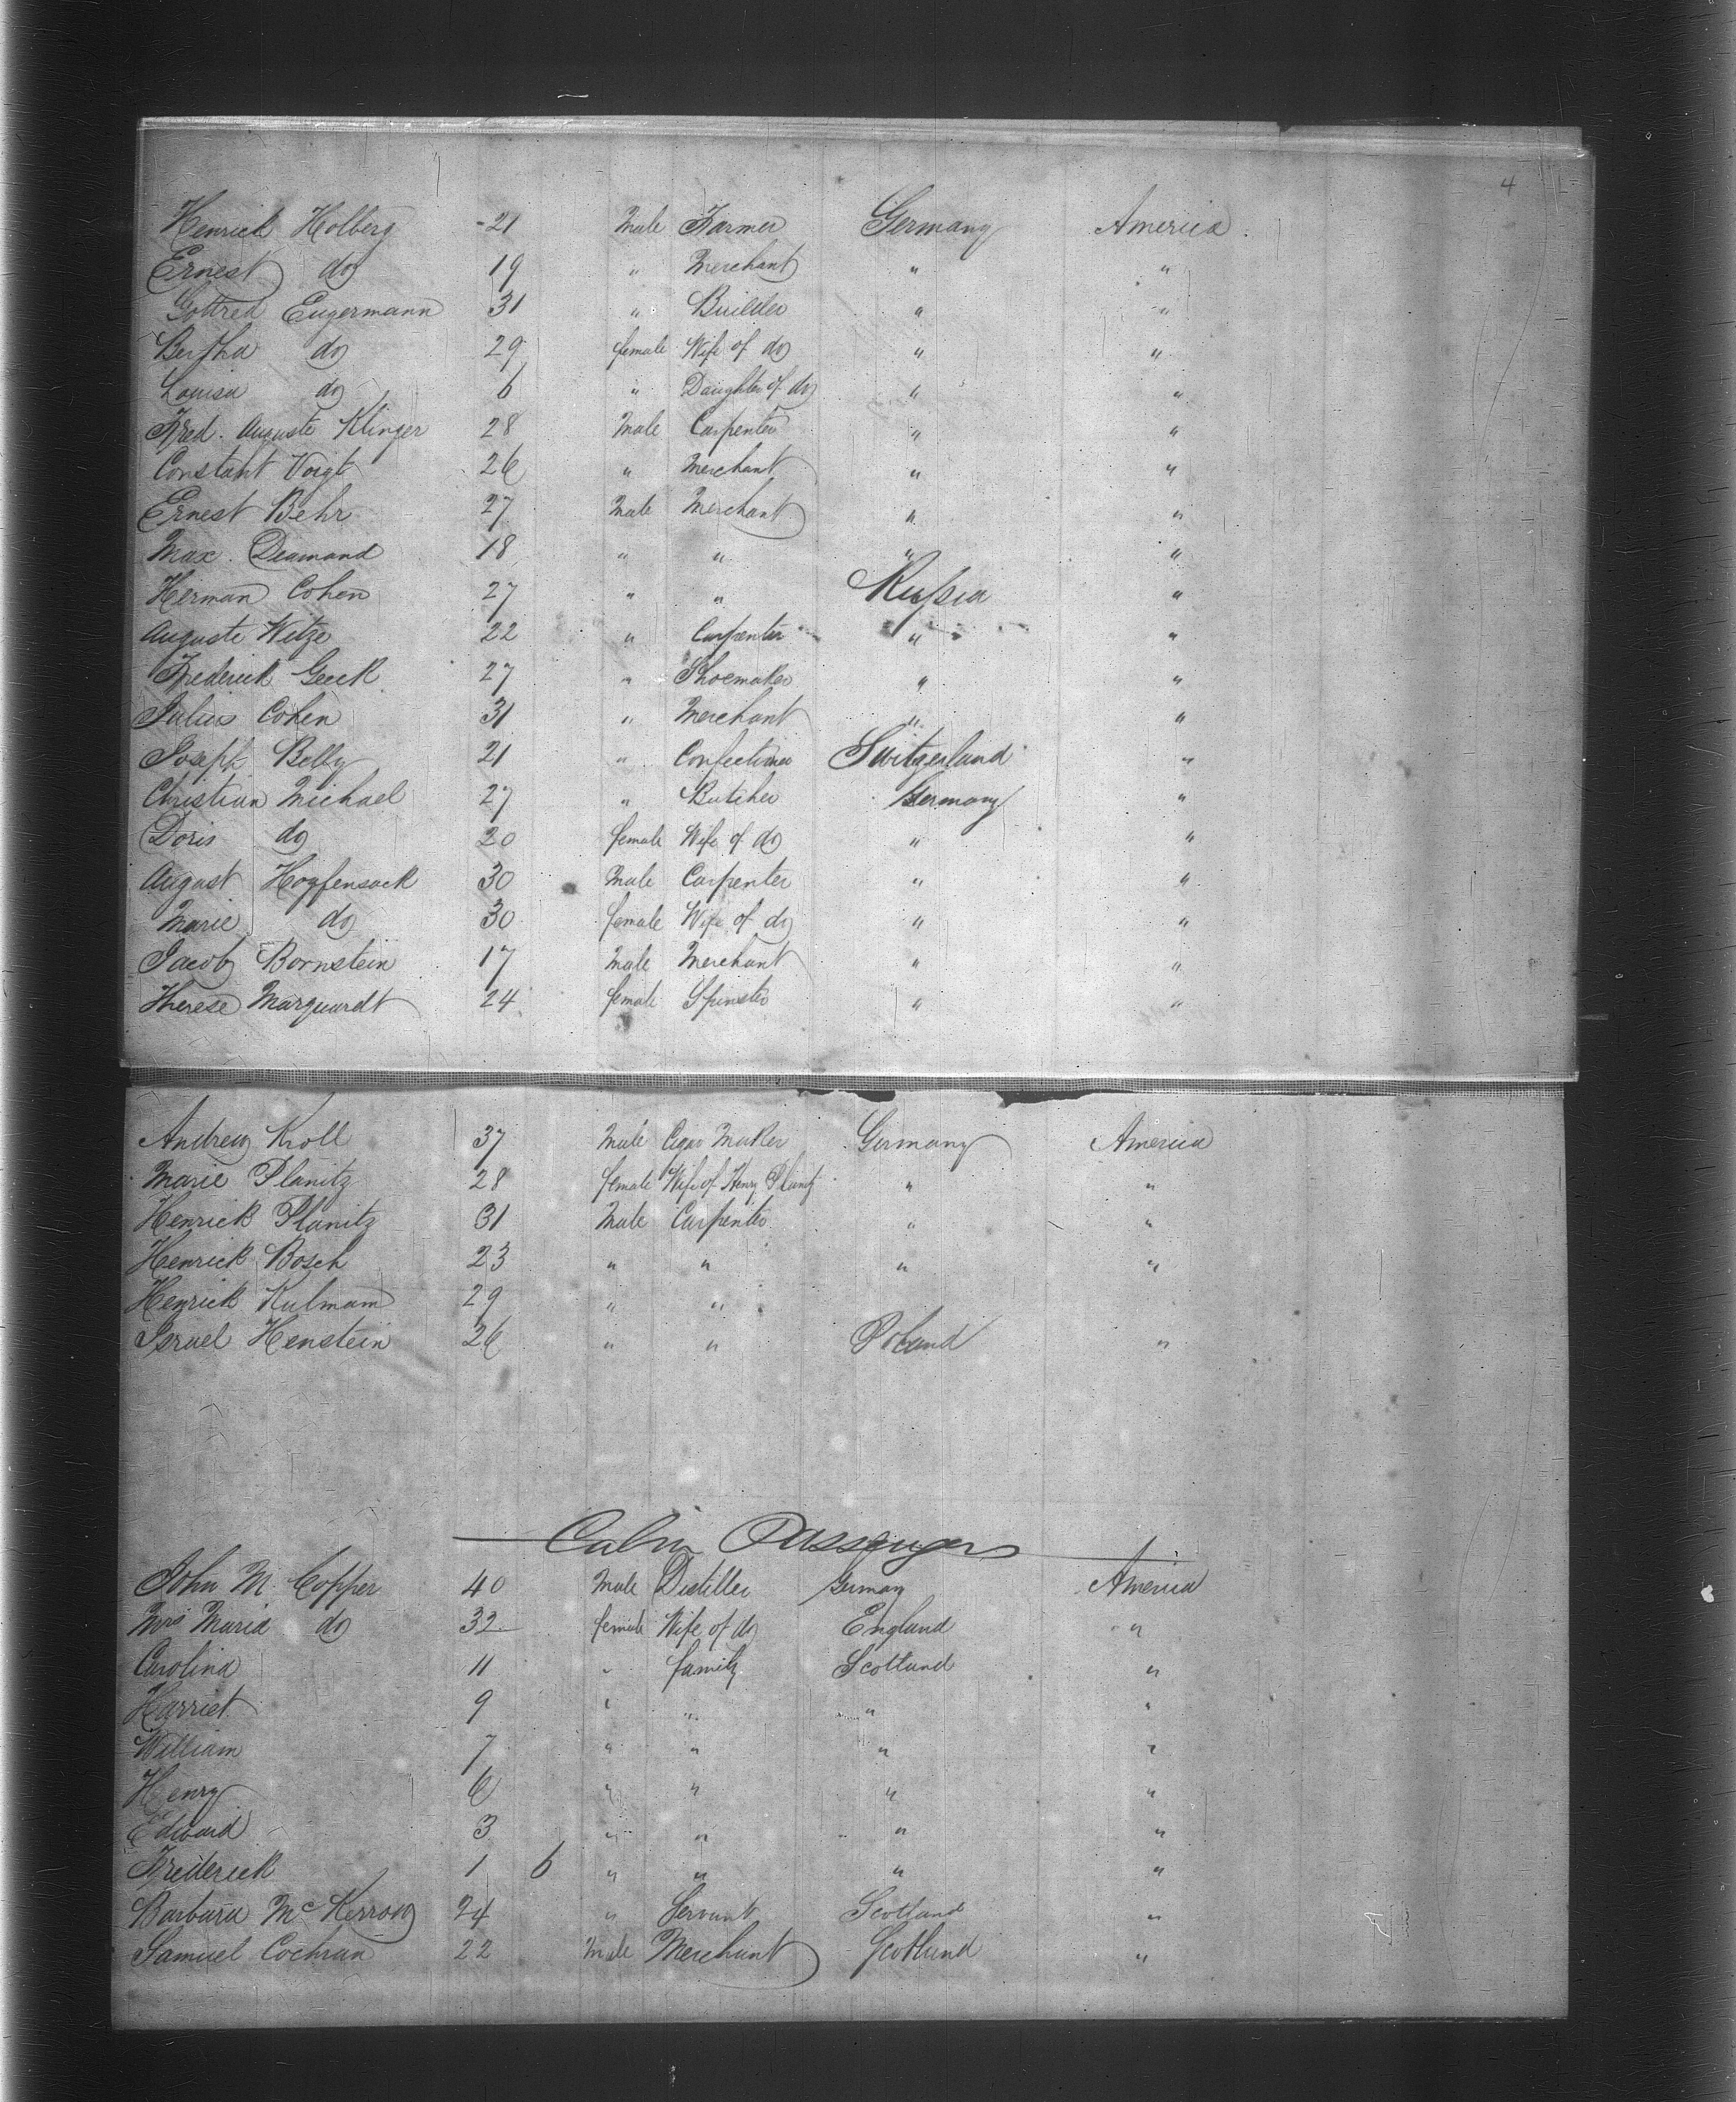 4
Henrick Holberg -21 Male Farmer Germany America
Ernest do 19 " Merchant " "
Gottred Eugermann 31 " Builder " "
Bertha do 29 female Wife of do " "
Louisa do 6 " Daughter of do " "
Fred. Auguste Klinger 28 Male Carpenter " "
Constant Voigt 26 " Merchant " "
Ernest Behr 27 Male Merchant " "
Max. Deamand 18 " " " "
Herman Cohen 27 " " Russia "
Auguste Witze 22 " Carpenter " "
Frederick Geek 27 " Shoemaker " "
Julius Cohen 31 " Merchant " "
Joseph Belly 21 " Confectioner Switzerland "
Christian Michael 27 " Butcher Germany "
Doris do 20 female Wife of do " "
August 30 Male Carpenter " "
Marie do 30 female Wife of do " "
Jacob Bornstein 17 Male Merchant " "
Therese Marquardt 24 female Spinster " "
Andrew Kroll 37 Male Cigar Maker Germany America
Marie Planitz 28 female Wife of Henry Planitz " "
Henrick Planitz 31 Male Carpenter " "
Henrick Bosch 23 " " " "
Henrick Kulmam 29 " "
Israel Henstein 26 " " Poland "
Cabin Passengers
John M. Copper 40 Male Distiller Germany America
Mrs Maria do 32 female Wife of do England "
Carolina 11 " family Scotland "
Harriet 9 " " " "
William 7 " " " "
Henry 6 " " " "
Edward 3 " " " "
Frederick 1 6 " " " "
Barbara Mc Kerrow 24 " Servant Scotland "
Samuel Cochran 22 Male Merchant Scotland "